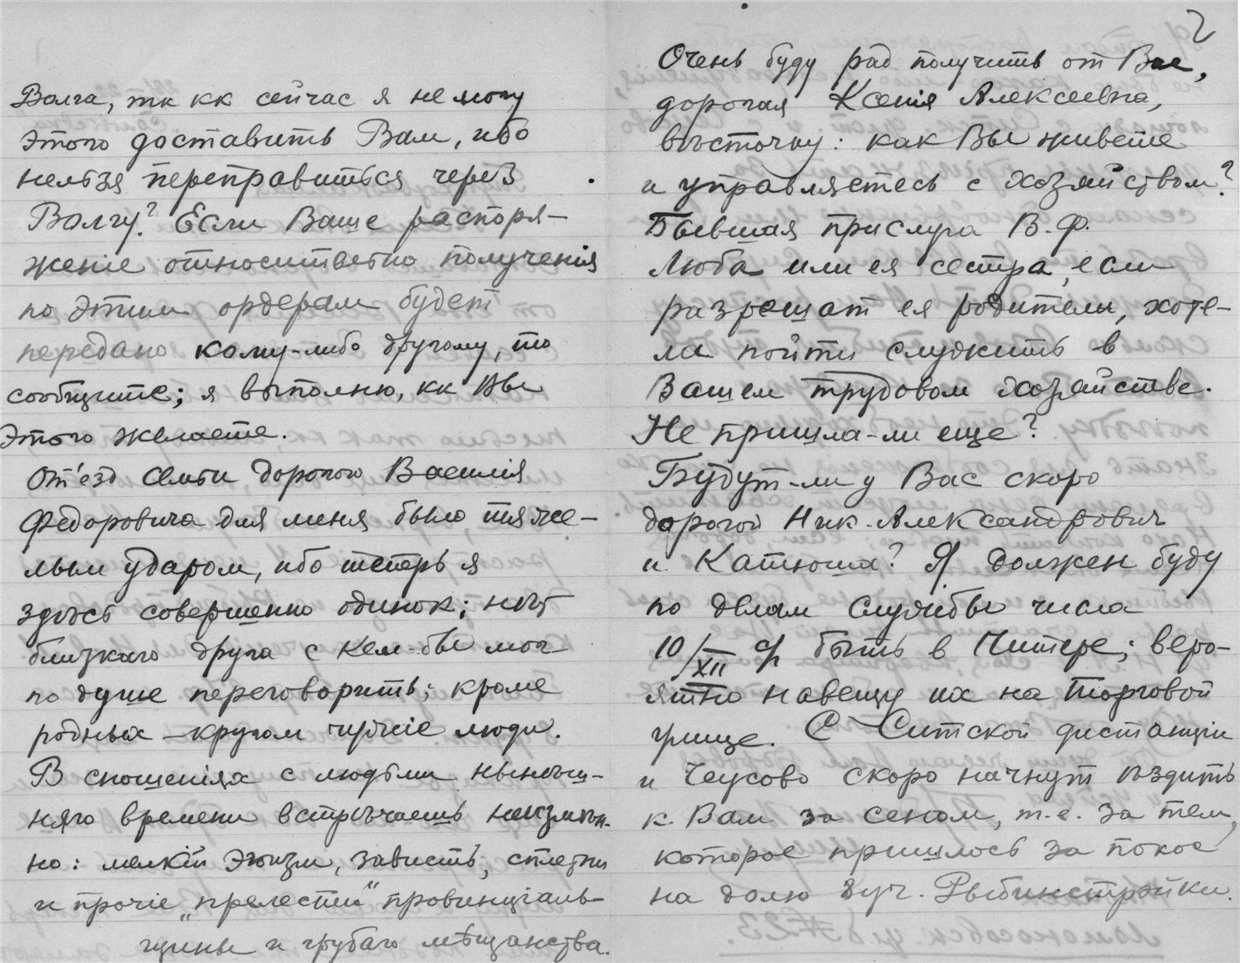 Волга, тк кк сейчас я не могу
этого доставить Вам, ибо
нельзя переправиться через
Волгу? Если Ваше распоря-
жение относительно получения
по этим ордерам будет
передано кому-либо другому, то
сообщите; я выполню, кк Вы
этого желаете.
От'езд семьи дорогого Василiя
Федоровича для меня было тяже-
лым ударом, ибо теперь я
здѣсь совершенно одинок; нѣт
близкаго друга с кем-бы мог
по душе переговорить: кроме
родных – кругом чужiе люди.
В сношенiях с людьми нынѣш-
няго времени встрѣчаешь неизмѣн-
но: мелкiй эгоизм, зависть, сплетни
и прочiе „прелести" провинцiаль-
щины и грубаго мѣщанства.
2
Очень буду рад получить от Вас,
дорогая Ксенiя Алексеевна,
вѣсточку: как Вы живете
и управляетесь с хозяйством?
Бывшая прислуга В.Ф.
Люба или ея сестра, если
разрешат ея родители, хоте-
ла пойти служить в
Вашем трудовом хозяйстве.
Не пришла-ли еще?
Будут-ли у Вас скоро
дорогой Ник. Александрович
и Катюша? Я должен буду
по делам службы числа
10/XII быть в Питере; веро-
ятно навещу их на Торговой
улице. С Ситской дистанцiи
и Чеусово скоро начнут ѣздить
к Вам за сеном, т.е. за тем,
которое пришлось за покос
на долю 2 уч. Рыбинстройки.